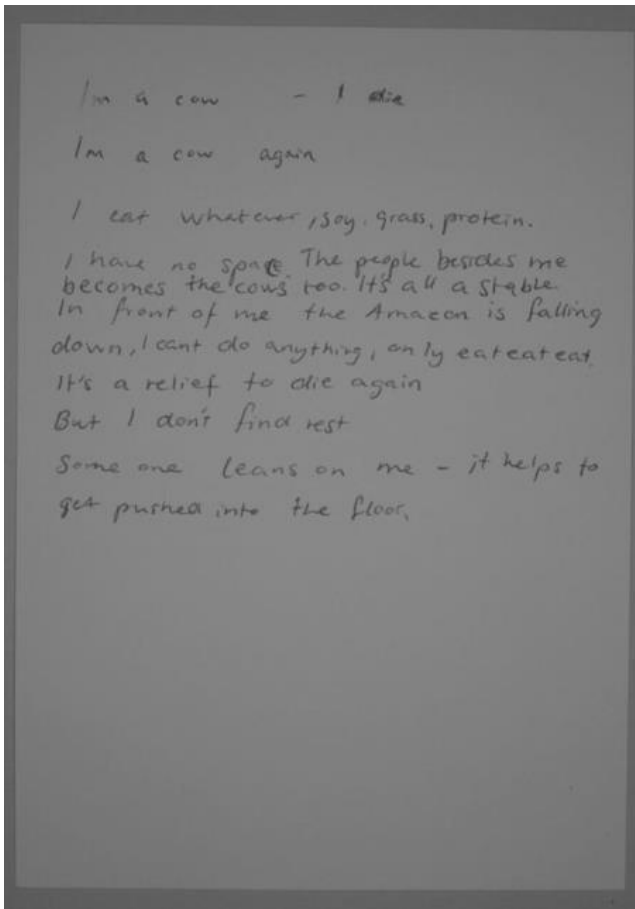 Im a cow - I die
Im a cow again
I eat whatever, soy, grass, protein.
I have no space. The people besides me
becomes the cows too. It's all a stable.
In front of me the Amazon is falling
down, I cant do anything, only eateateat.
It's a relief to die again
But I don't find rest
Some one leans on me - it helps to
get pushed into the floor.